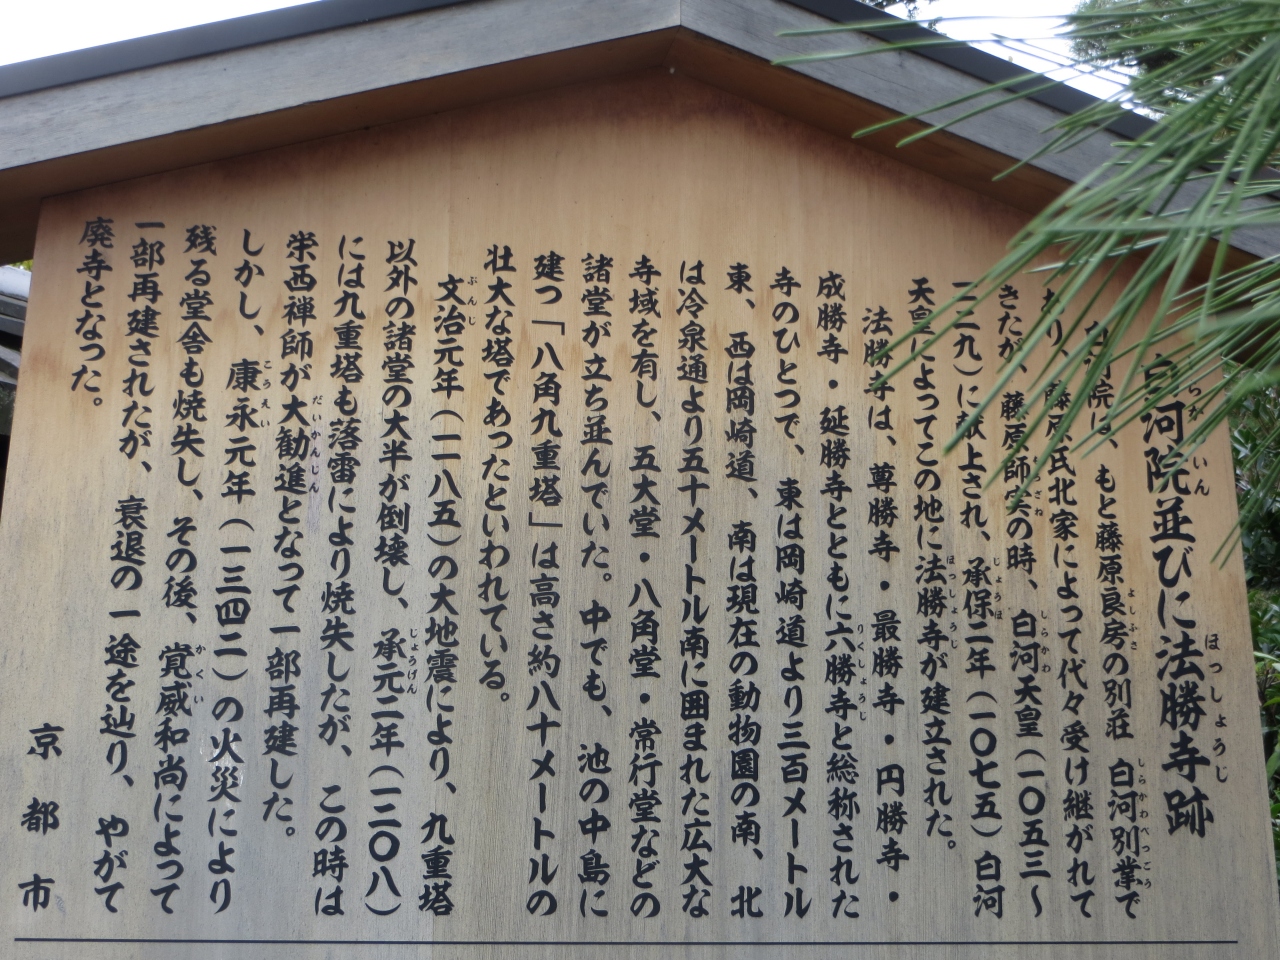 河院並びに法勝寺跡
院は、もと藤原良房の別荘 白河別業で
あり、藤原氏北家によって代々受け継がれて
きたが、藤原師実の時、白河天皇(一〇五三〜
一一二九)に献上され、承保二年(一〇七五)白河
天皇によってこの地に法勝寺が建立された。
法勝寺は、尊勝寺・最勝寺・円勝寺・
成勝寺・延勝寺とともに六勝寺と総称された
寺のひとつで、東は岡崎道より三百メートル
東、西は岡崎道、南は現在の動物園の南、北
は冷泉通より五十メートル南に囲まれた広大な
寺域を有し、五大堂・八角堂・常行堂などの
諸堂が立ち並んでいた。中でも、池の中島に
建つ「八角九重塔」は高さ約八十メートルの
壮大な塔であったといわれている。
文治元年(一一八五)の大地震により、九重塔
以外の諸堂の大半が倒壊し、承元二年(一二〇八)
には九重塔も落雷により焼失したが、この時は
栄西禅師が大勧進となって一部再建した。
しかし、康永元年(一三四二)の火災により
残る堂舎も焼失し、その後、覚威和尚によって
一部再建されたが、衰退の一途を辿り、やがて
廃寺となった。
京都市